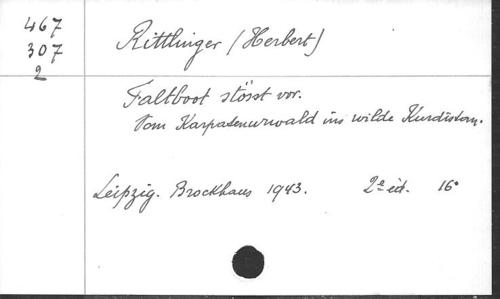 467
307
2
Rittlinger (Herbert)
Faltboot stösst vor.
Vom Karpatenurwald ins wilde Kurdistan.
Leipzig. Brockhaus 1943. 2e éd. 16°